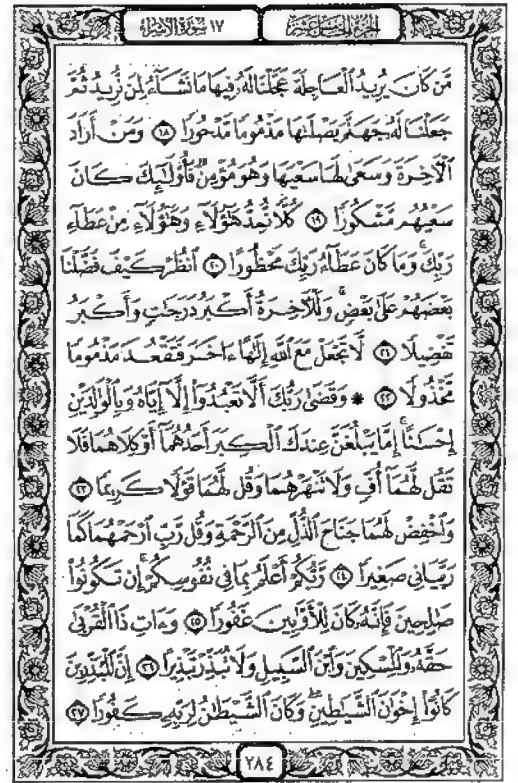 ١٧ سورة الإسراء
الجزء الخامس عشر
مَّن كَانَ يُرِيدُ ٱلْعَاجِلَةَ عَجَّلْنَا لَهُۥ فِيهَا مَا نَشَآءُ لِمَن نُّرِيدُ ثُمَّ
جَعَلْنَا لَهُۥ جَهَنَّمَ يَصْلَىٰهَا مَذْمُومًا مَّدْحُورًا ١٨ وَمَنْ أَرَادَ
ٱلْأَخِرَةَ وَسَعَىٰ لَهَا سَعْيَهَا وَهُوَ مُؤْمِنٌ فَأُو۟لَـٰٓئِكَ كَانَ
سَعْيُهُم مَّشْكُورًا ١٩ كُلًّا نُّمِدُّ هَـٰٓؤُلَآءِ وَهَـٰٓؤُلَآءِ مِنْ عَطَآءِ
رَبِّكَ ۚ وَمَا كَانَ عَطَآءُ رَبِّكَ مَحْظُورًا ٢٠ ٱنظُرْ كَيْفَ فَضَّلْنَا
بَعْضَهُمْ عَلَىٰ بَعْضٍ ۚ وَلَلْأَخِرَةُ أَكْبَرُ دَرَجَـٰتٍ وَأَكْبَرُ
تَفْضِيلًا ٢١ لَّا تَجْعَلْ مَعَ ٱللَّهِ إِلَـٰهًا ءَاخَرَ فَتَقْعُدَ مَذْمُومًا
مَّخْذُولًا ٢٢ ۞ وَقَضَىٰ رَبُّكَ أَلَّا تَعْبُدُوٓا۟ إِلَّآ إِيَّاهُ وَبِٱلْوَٰلِدَيْنِ
إِحْسَـٰنًا ۚ إِمَّا يَبْلُغَنَّ عِندَكَ ٱلْكِبَرَ أَحَدُهُمَآ أَوْ كِلَاهُمَا فَلَا
تَقُل لَّهُمَآ أُفٍّ وَلَا تَنْهَرْهُمَا وَقُل لَّهُمَا قَوْلًا كَرِيمًا ٢٣
وَٱخْفِضْ لَهُمَا جَنَاحَ ٱلذُّلِّ مِنَ ٱلرَّحْمَةِ وَقُل رَّبِّ ٱرْحَمْهُمَا كَمَا
رَبَّيَانِى صَغِيرًا ٢٤ رَّبُّكُمْ أَعْلَمُ بِمَا فِى نُفُوسِكُمْ ۚ إِن تَكُونُوا۟
صَـٰلِحِينَ فَإِنَّهُۥ كَانَ لِلْأَوَّٰبِينَ غَفُورًا ٢٥ وَءَاتِ ذَا ٱلْقُرْبَىٰ
حَقَّهُۥ وَٱلْمِسْكِينَ وَٱبْنَ ٱلسَّبِيلِ وَلَا تُبَذِّرْ تَبْذِيرًا ٢٦ إِنَّ ٱلْمُبَذِّرِينَ
كَانُوٓا۟ إِخْوَٰنَ ٱلشَّيَـٰطِينِ ۖ وَكَانَ ٱلشَّيْطَـٰنُ لِرَبِّهِۦ كَفُورًا ٢٧
٢٨٤